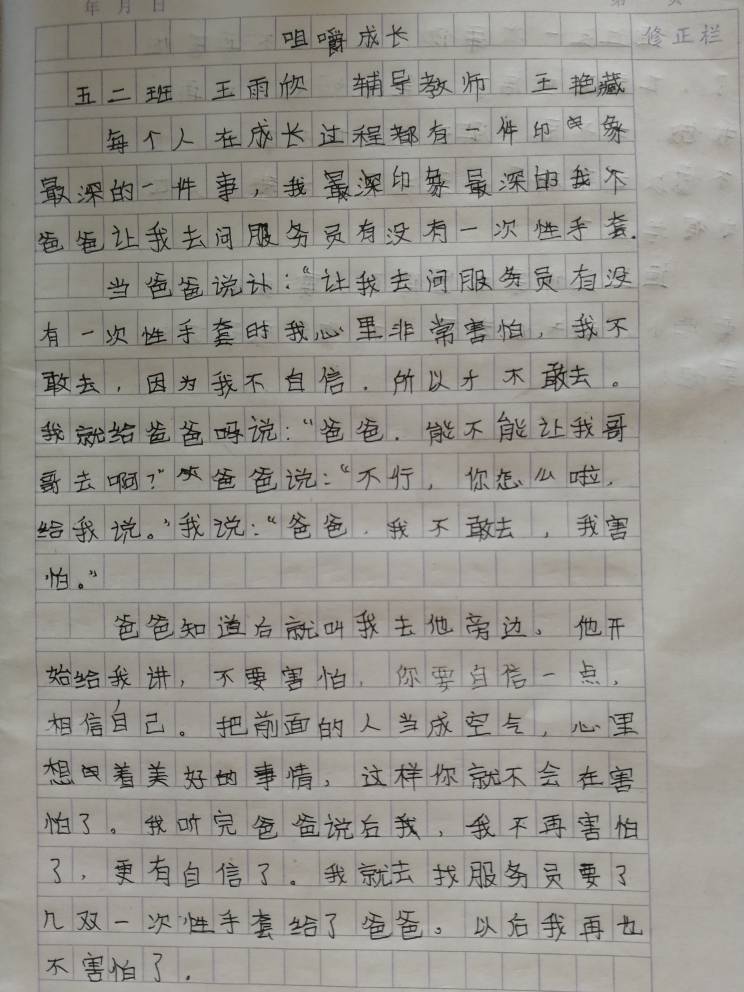 年 月 日
咀嚼成长
修正栏
五二班 王雨欣 辅导教师 王艳藏
每个人在成长过程都有一件印象
最深的一件事，我最深印象最深的我不
爸爸让我去问服务员有没有一次性手套.
当爸爸说：“让我去问服务员有没
有一次性手套时我心里非常害怕，我不
敢去，因为我不自信.所以才不敢去。
我就给爸爸吗说：“爸爸.能不能让我哥
哥去啊？”爸爸说：“不行，你怎么啦，
给我说。”我说：“爸爸.我不敢去，我害
怕。”
爸爸知道后就叫我去他旁边。他开
始给我讲，不要害怕，你要自信一点，
相信自己。把前面的人当成空气，心里
想着美好的事情，这样你就不会在害
怕了。我听完爸爸说后我，我不再害怕
了，更有自信了。我就去找服务员要了
几双一次性手套给了爸爸。以后我再也
不害怕了.